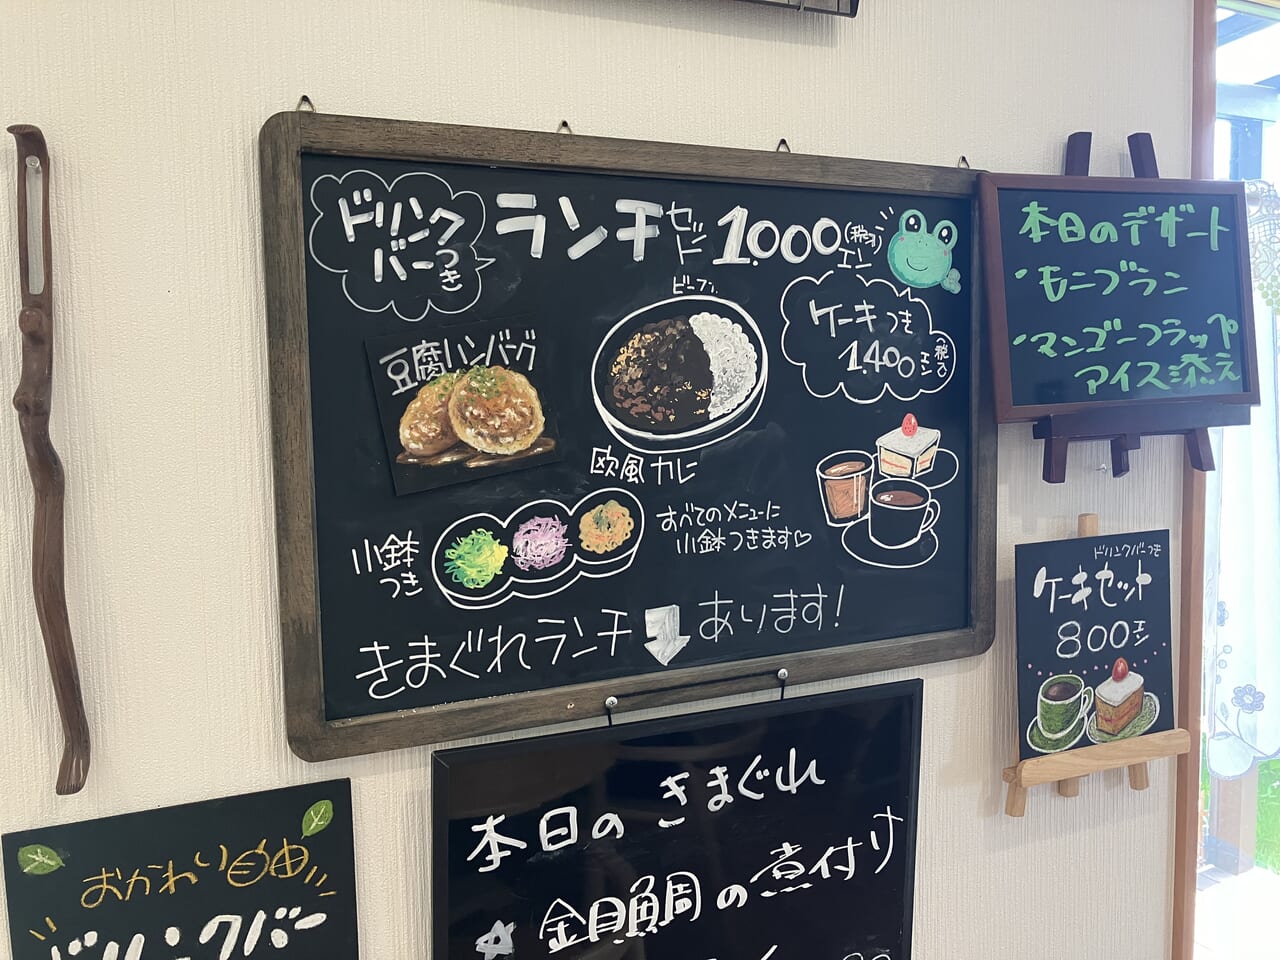 ドリンク
バーつき
ランチセット 1.000(税込)エン
豆腐ハンバーグ
ビーフ
欧風カレー
ケーキつき
1.400エン(税込)
小鉢
つき
すべてのメニューに
小鉢つきます♡
きまぐれランチ⬇あります!
本日のデザート
・モンブラン
・マンゴーフラッペ
アイス添え
ドリンクバーつき
ケーキセット
800エン
本日のきまぐれ
☆金目鯛の煮付け
おかわり自由
ドリンクバー